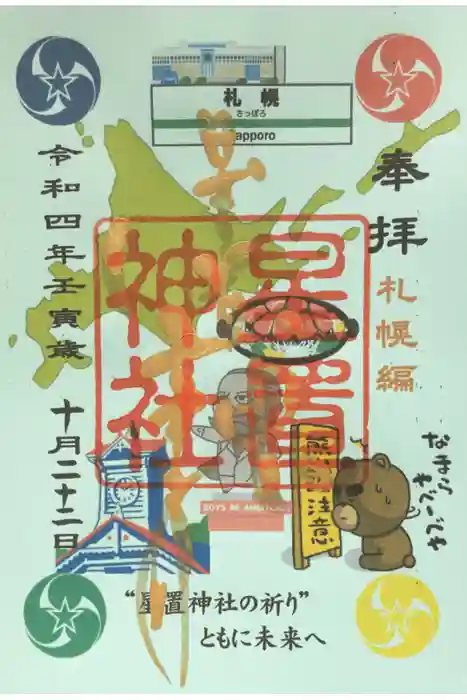 奉拝
札幌編
札幌
さっぽろ
Sapporo
星置
神社
令和四年壬寅歳
十月二十二日
BOYS BE AMBITIOUS
熊注意
なまら
わや～じゃ
“星置神社の祈り”
ともに未来へ